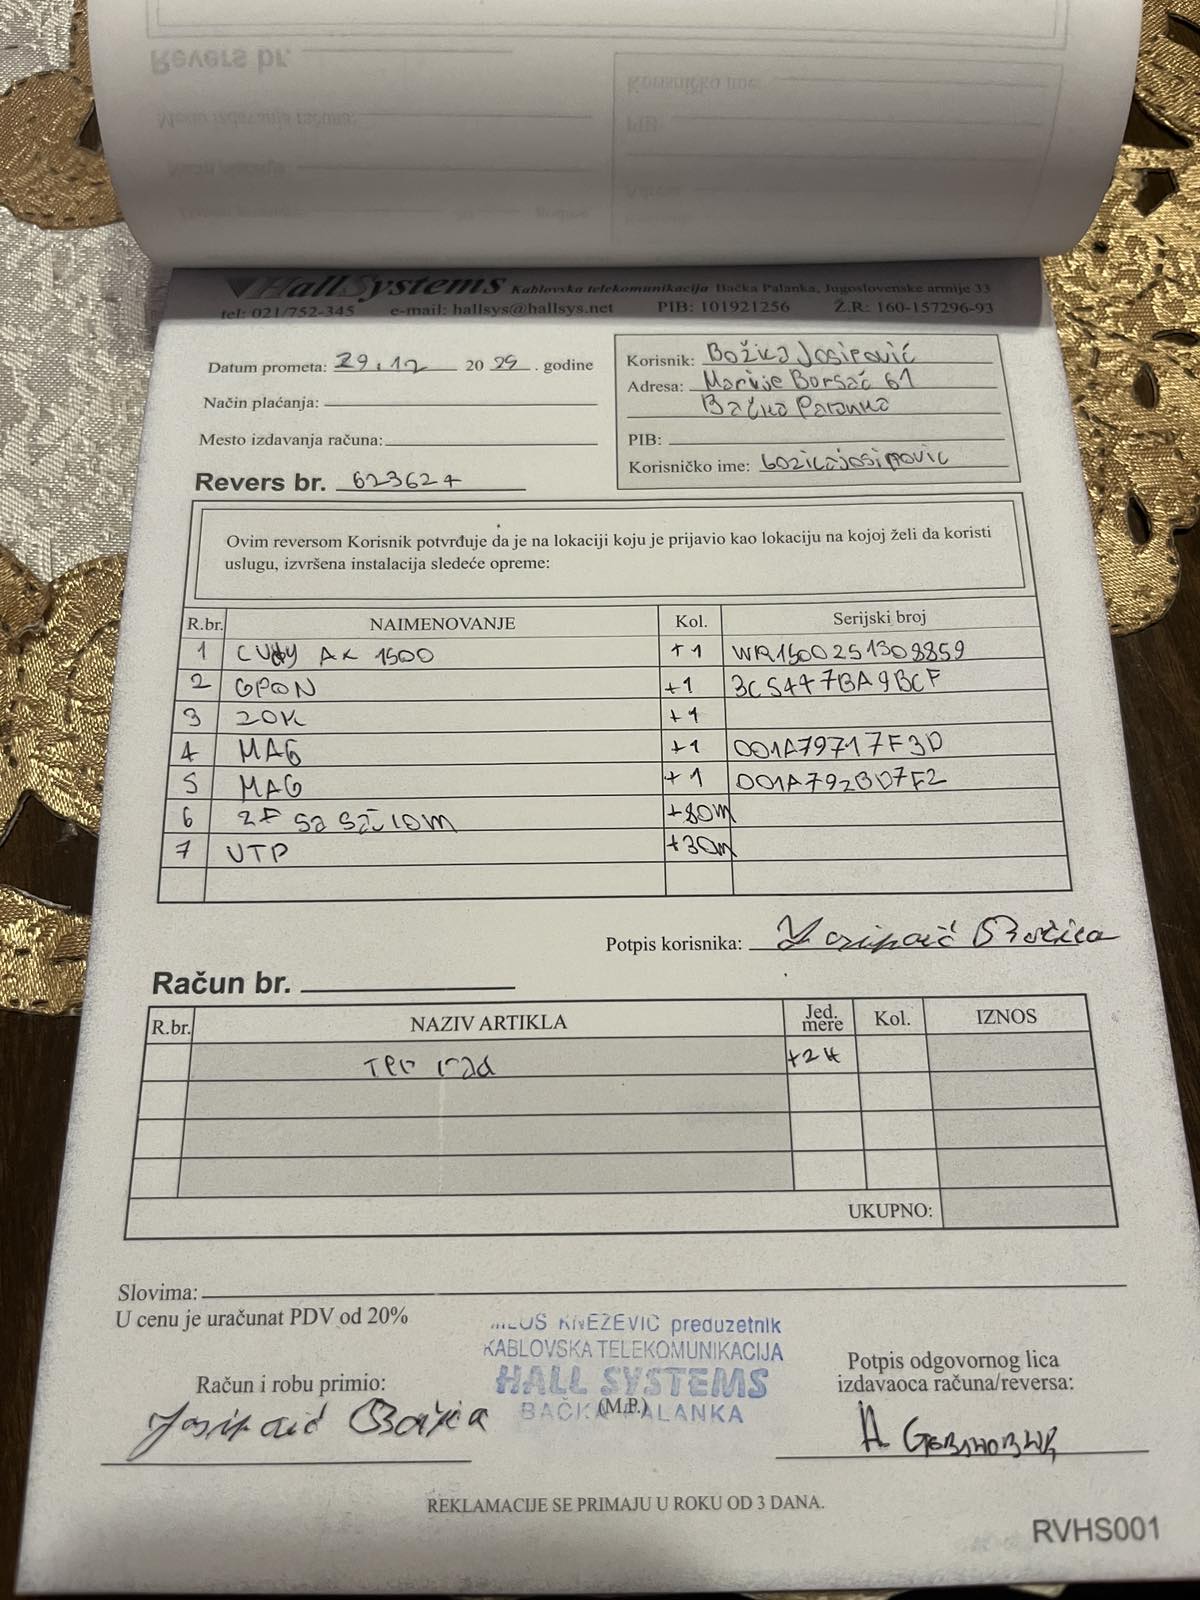 HallSystems Kablovska telekomunikacija Bačka Palanka, Jugoslovenske armije 33
tel: 021/752-345 e-mail: hallsys@hallsys.net PIB: 101921256 Ž.R: 160-157296-93
Datum prometa: 29.12 20 . godine
Korisnik: Božica Josipović
Način plaćanja:
Adresa: Marije Bursać 61
Bačka Palanka
Mesto izdavanja računa:
PIB:
Korisničko ime: bozicajosipovic
Revers br. 623624
Ovim reversom Korisnik potvrđuje da je na lokaciji koju je prijavio kao lokaciju na kojoj želi da koristi
uslugu, izvršena instalacija sledeće opreme:
R.br. NAIMENOVANJE Kol. Serijski broj
1 CUDY AX 1500 +1 WR1500251308859
2 GPON +1 3C5447BA9BCF
3 ZOK +1
4 MAG +1 001A79717F3D
5 MAG +1 001A792BD7F2
6 2F sa sajlom +80m
7 UTP +30m
Potpis korisnika: Josipović Božica
Račun br.
R.br. NAZIV ARTIKLA Jed. mere Kol. IZNOS
Ter rad +2H
UKUPNO:
Slovima:
U cenu je uračunat PDV od 20%
MILOŠ KNEŽEVIĆ preduzetnik
KABLOVSKA TELEKOMUNIKACIJA
HALL SYSTEMS
BAČKA PALANKA
(M.P.)
Račun i robu primio:
Josipović Božica
Potpis odgovornog lica
izdavaoca računa/reversa:
REKLAMACIJE SE PRIMAJU U ROKU OD 3 DANA.
RVHS001